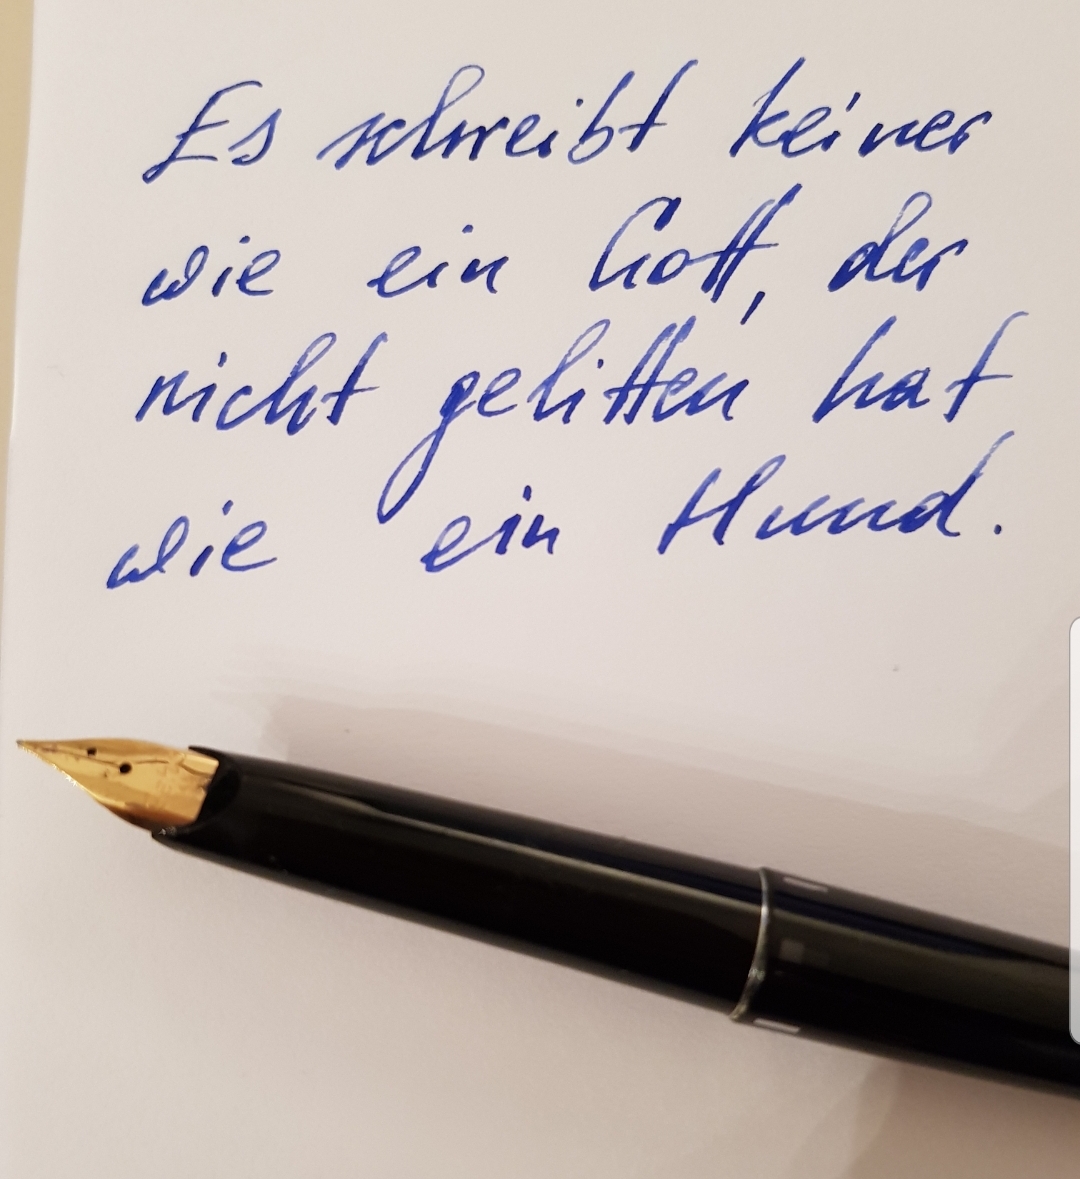 Es schreibt keiner
wie ein Gott, der
nicht gelitten hat
wie ein Hund.